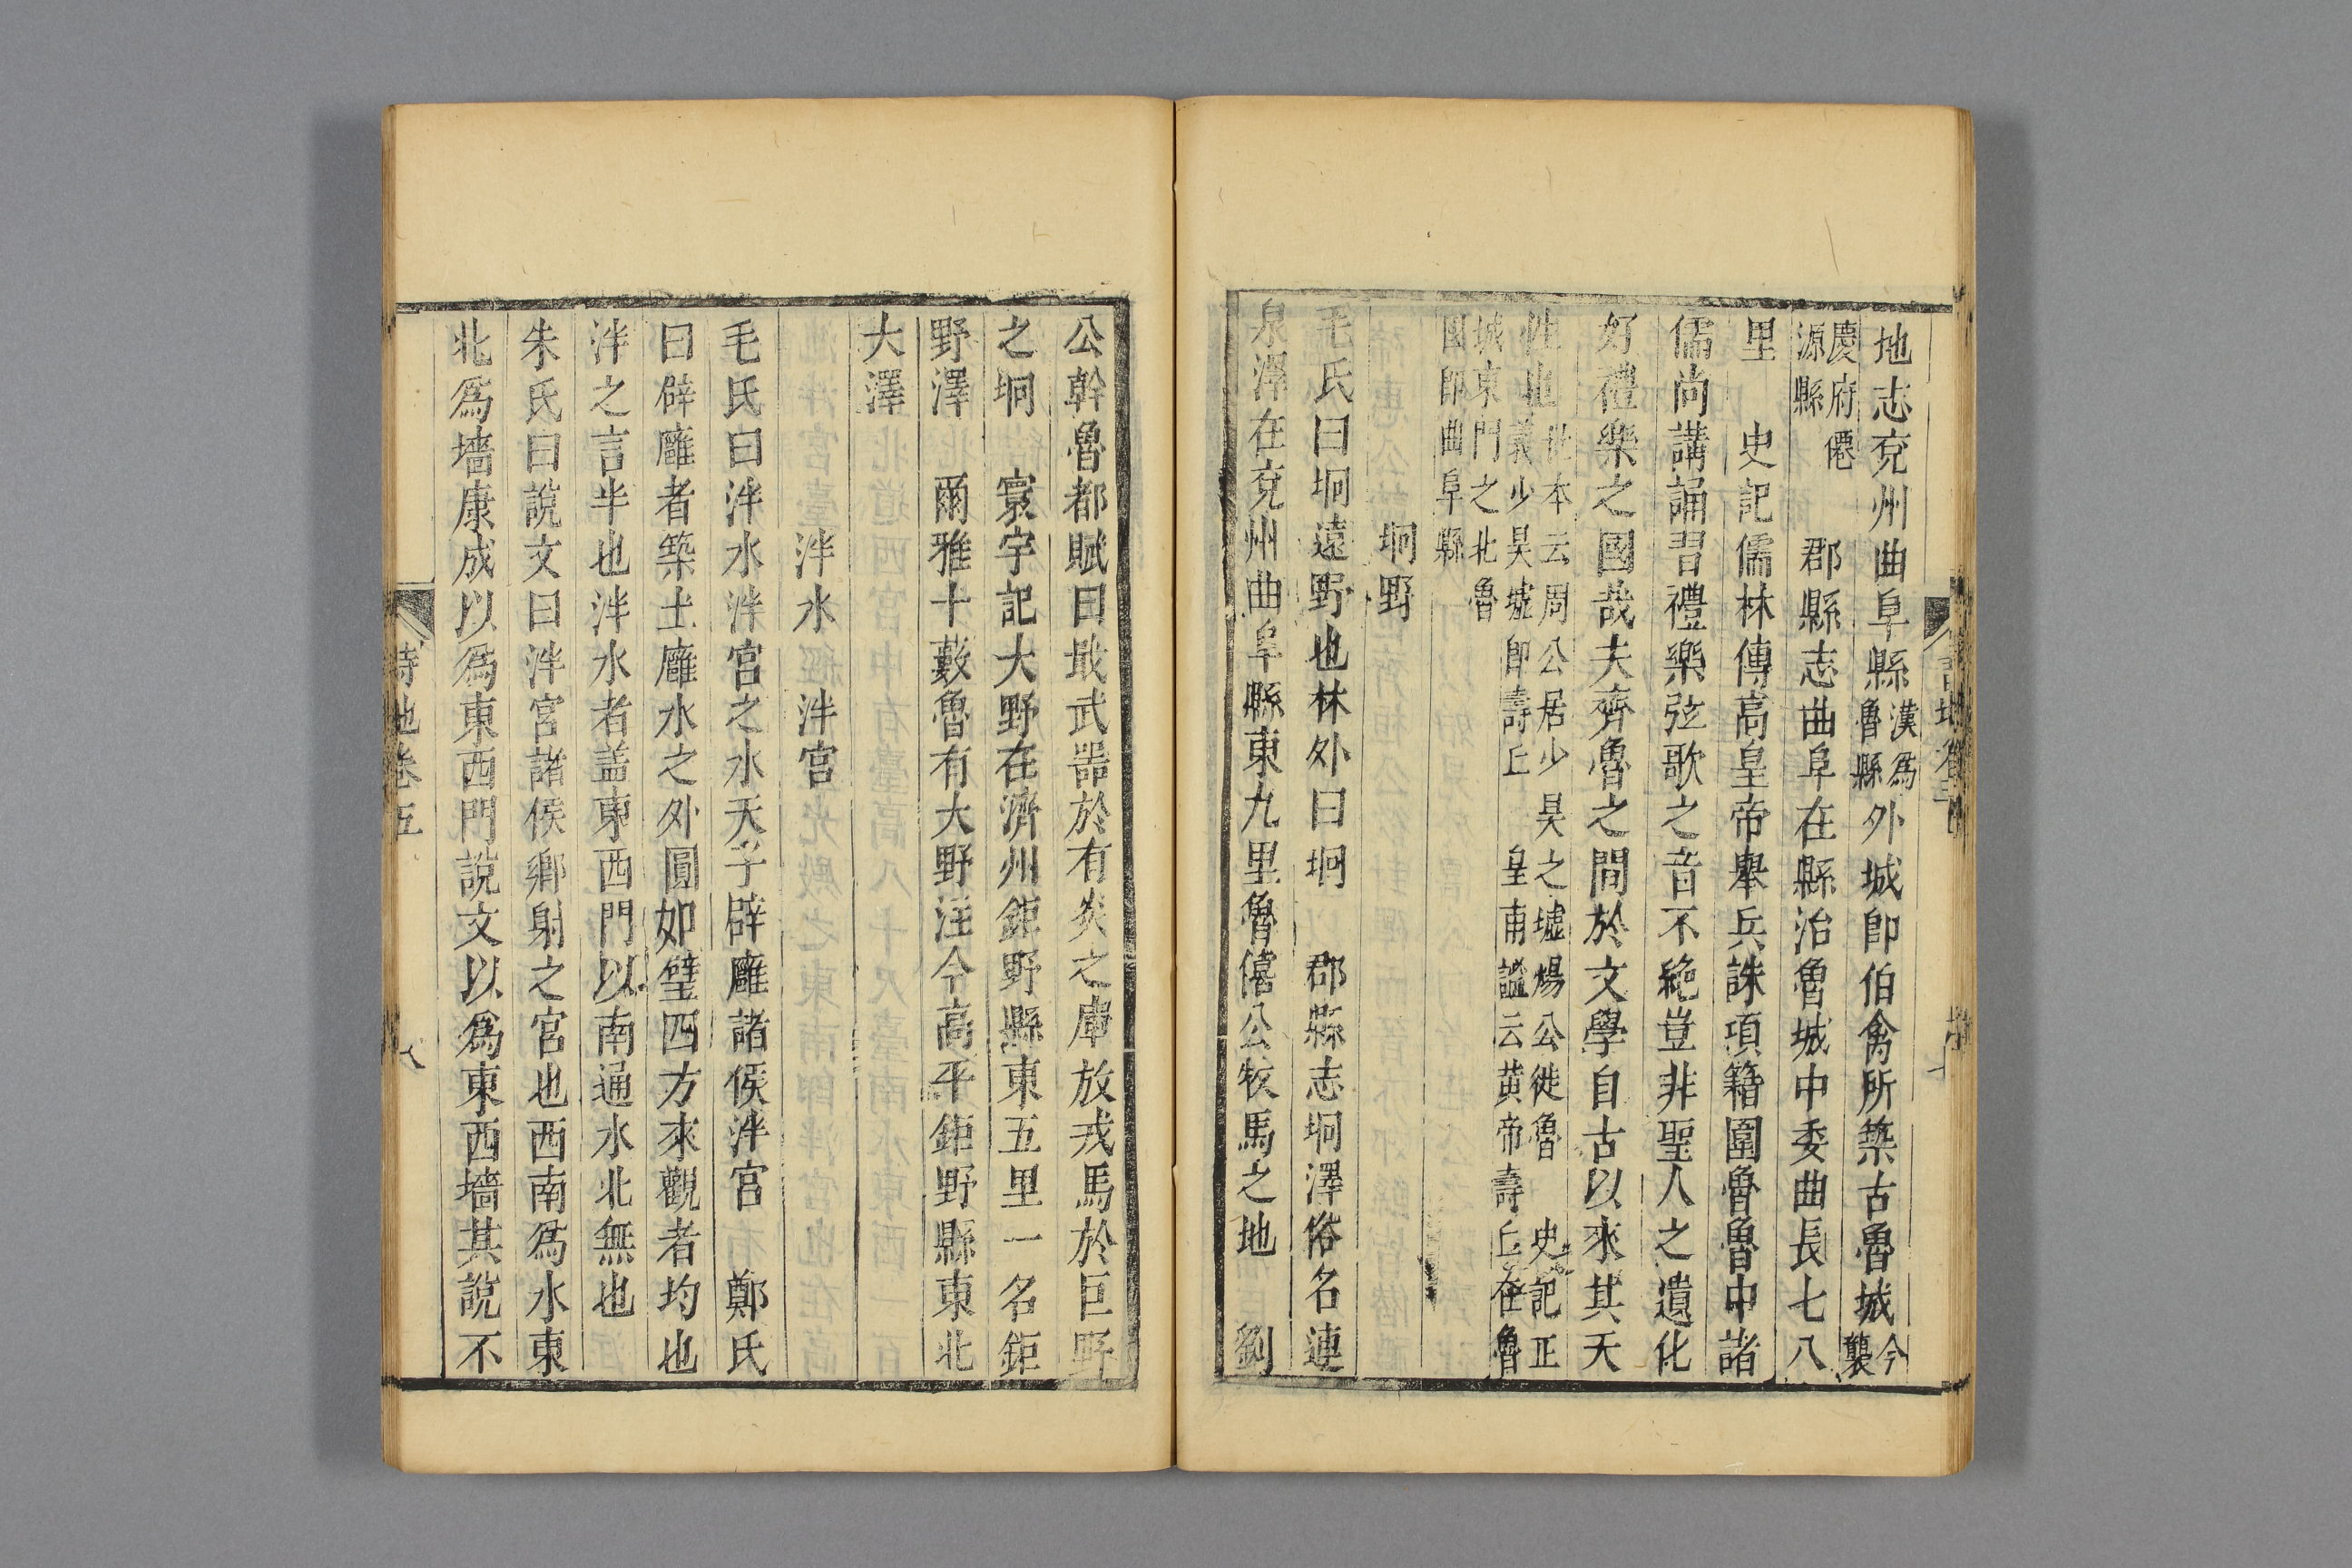 地志兗州曲阜縣漢爲魯縣外城卽伯禽所築古魯城今襲
慶府僊源縣 郡縣志曲阜在縣治魯城中委曲長七八
里 史記儒林傳高皇帝舉兵誅項籍圍魯魯中諸
儒尚講誦習禮樂弦歌之音不絶豈非聖人之遺化
好禮樂之國哉夫齊魯之間於文學自古以來其天
性也世本云周公居少昊之墟煬公徙魯 史記正義少昊墟卽壽丘 皇甫謐云黄帝壽丘在魯
城東門之北魯國卽曲阜縣
坰野
毛氏曰坰遠野也林外曰坰 郡縣志坰澤俗名連
泉澤在兗州曲阜縣東九里魯僖公牧馬之地 劉
公幹魯都賦曰戢武噐於有炎之庫放戎馬於巨野
之坰 寰宇記大野在濟州鉅野縣東五里一名鉅
野澤 爾雅十藪魯有大野注今高平鉅野縣東北
大澤
泮水 泮宮
毛氏曰泮水泮宮之水天子辟廱諸侯泮宮 鄭氏
曰辟廱者築土廱水之外圓如璧四方來觀者均也
泮之言半也泮水者盖東西門以南通水北無也
朱氏曰說文曰泮宮諸侯鄉射之宮也西南爲水東
北爲墻康成以爲東西門說文以爲東西墻其說不
詩地卷五
八